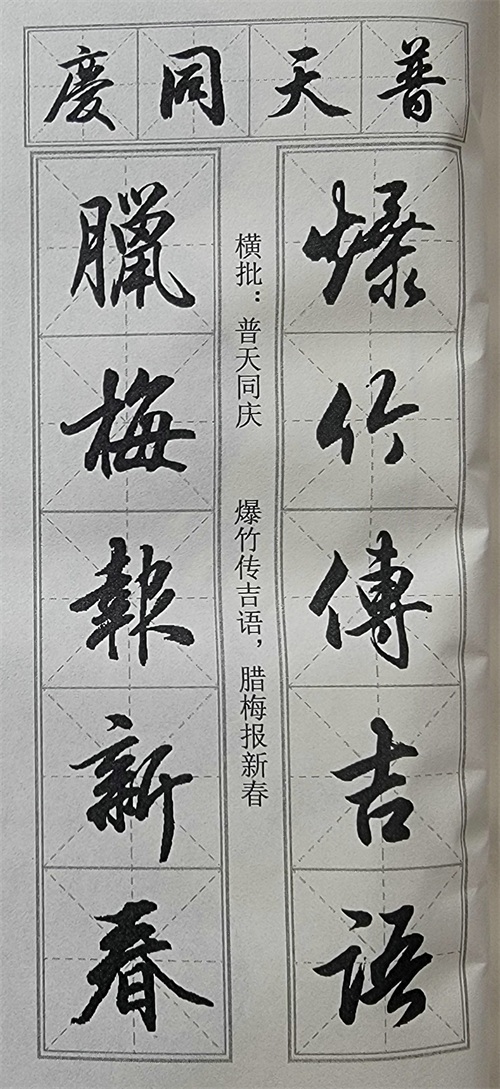 普天同慶
爆竹傳吉語
横批：普天同庆
爆竹传吉语，腊梅报新春
臘梅報新春